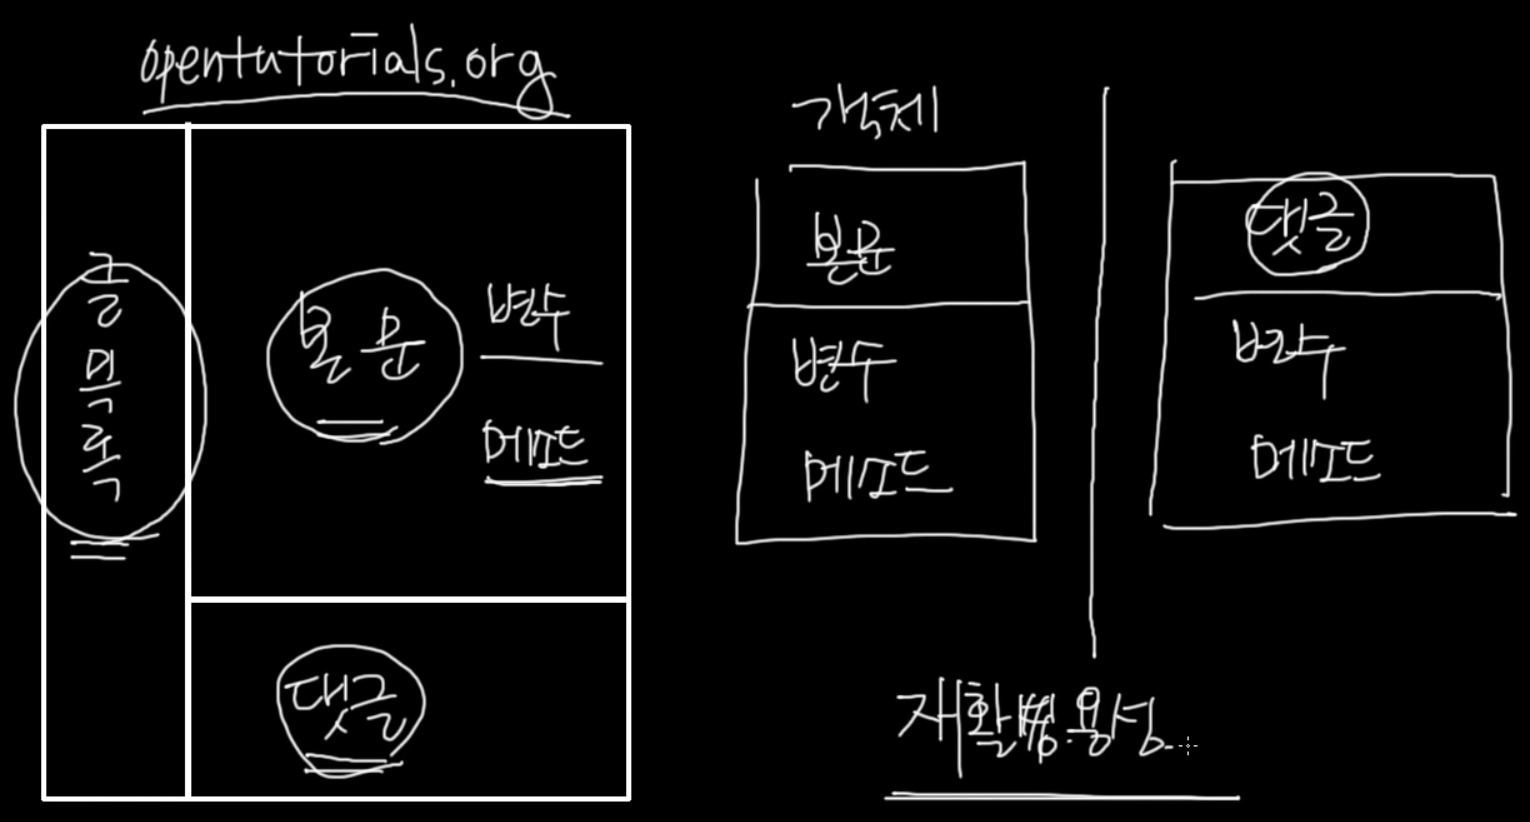 opentutorials.org
글목록
본문
변수
메소드
댓글
객체
본문
변수
메소드
댓글
변수
메소드
재활용성